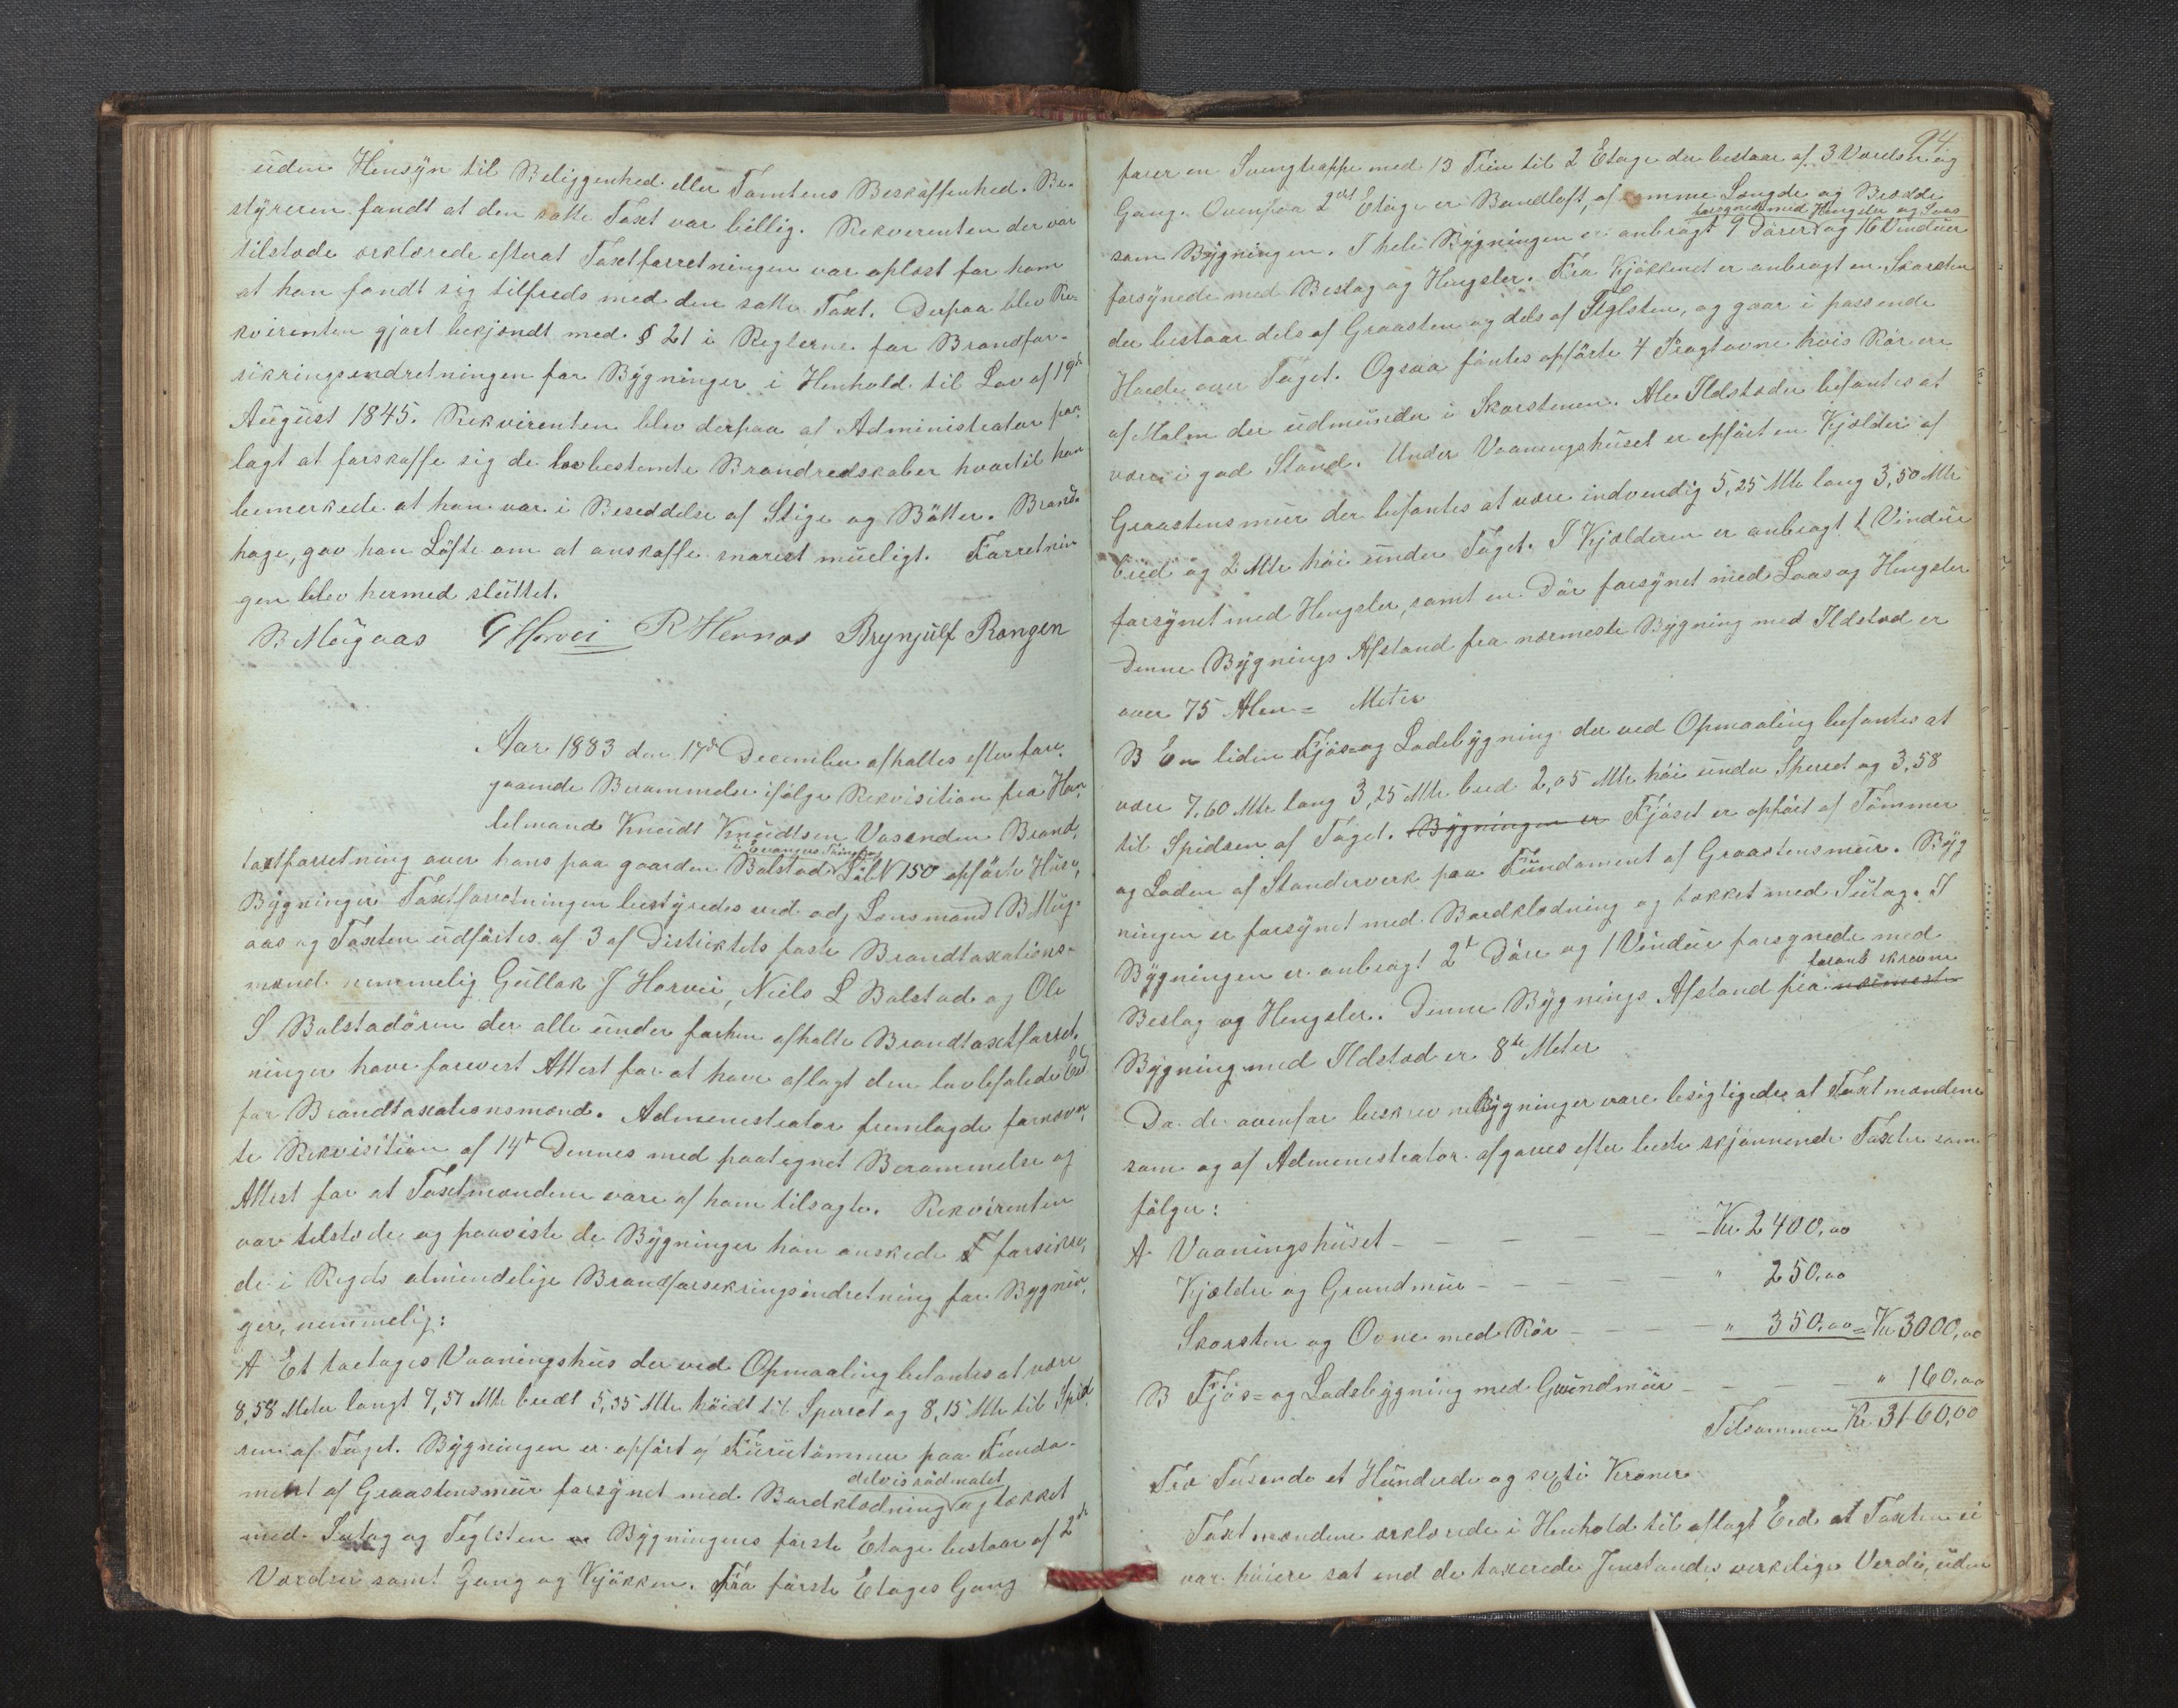 uden Hensyn til Beliggenhed eller Tomtens Beskaffenhed. Be-
styreren fandt at den satte Taxt var billig. Rekverenten der var
tilstede erklærede efterat Taxtforretningen var oplæst for ham
at han fandt sig tilfreds med den satte Taxt. Derpaa blev Re-
kvirenten gjort bekjendt med § 21 i Reglerne for Brandfor-
sikringsindretningen for Bygninger i Henhold til Lov af 19de
August 1845. Rekvirenten blev derpaa af Administrator paa
lagt at forskaffe sig de lovbestemte Brandredskaber hvortil han
bemerkede at han var i Besiddelse af Stige og Bøtter. Brand
hage, gav han Løfte om at anskaffe snarest mueligt. Forretnin
gen blev hermed sluttet.
B Mügaas G Horvei R Hernæs Brynjulf Rongen
Aar 1883 den 17de December afholtes efter fore
gaaende Berammelse ifølge Rekvisition fra Han
delmand Knudt Knudtsen Vasenden Brand,
i Evangers Thinglag
taxtforretning over hans paa gaarden Bolstad Løb N 150 opførte Huse,
Bygninger Taxtforretningen bestyredes ved adj Lensmand B Müg-
aas og Taxten udførtes af 3 af Districktets faste Brandtaxations-
mænd nemmelig Gullak J Horvei, Niels L Bolstad og Ole
S Bolstadøren der alle under forhen afholte Brandtaxtforret,
ninger have forevist Attest for at have aflagt den lovbefalede Eed
for Brandtaxationsmænd. Admenistrator fremlagde fornævn,
te Rekvisition af 14de Dennes med paategnet Berammelse og
Attest for at Taxtmændene vare af ham tilsagte. Rekvirenten
var tilstede og paaviste de Bygninger han ønskede forsikre,
de i Rigets almindelige Brandforsekringsindretning for Bygnin,
ger, nemmelig:
A Et toetages Vaaningshus der ved Opmaaling befantes at være
8,58 Meter langt 7,57 Mtr bredt 5,35 Mtr høidt til Sperret og 8,15 Mtr til Spid
sen af Taget. Bygningen er opført af Furutømmer paa Funda-
delvis rødmalet
ment af Graastensmur forsynet med Bordklædning og tækket
med Sutag og Teglsten Bygningens første Etage bestaar af 2de
Værdser samt Gang og Kjøkken. Fra første Etages Gang
94
fører en Svengtrappe med 13 Trin til 2 Etage der bestaar af 3 Værelser og
Gang. Ovenpaa 2det Etage er Bandloft, af samme Længde og Bredde
forsynede med Hengsler og Laas
som Bygningen. I hele Bygningen er anbragt 9 Dører og 16 Vinduer
forsynede med Beslag og Hengsler. Fra Kjøkkenet er anbragt en Skorsten
der bestaar dels af Graasten og dels af Teglsten, og gaar i passende
Høide over Taget. Ogsaa fantes opførte 4 Tragtovne hvis Rør ere
af Malm der udmunder i Skorstenen. Ale Ildstæder befantes at
være i god Stand. Under Vaaningshuset er opført en Kjælder af
Graastensmur der befantes at være indvendig 5,25 Mtr lang 3,50 Mtr
bred og 2 Mtr høi under Taget. I Kjælderen er anbragt 1 Vindue
forsynet med Hengsler, samt en Dør forsynet med Laas og Hengsler
Denne Bygnings Afstand fra nærmeste Bygning med Ildsted er
over 75 Alen = Meter
B En liden Fjøs= og Ladebygning der ved Opmaaling befantes at
være 7,60 Mtr lang 3,25 Mtr bred 2,05 Mtr høi under Sperret og 3,58
til Spidsen af Taget. Bygningen er Fjøset er opført af Tømmer
og Laden af Standerverk paa Fundament af Graastensmur. Byg
ningen er forsynet med Bordklædning og tækket med Sutag. I
Bygningen er anbragt 2de Døre og 1 Vindue forsynede med
foranskrevne
Beslag og Hengsler. Denne Bygnings Afstand fra nærmeste
Bygning med Ildsted er 8te Meter
Da de ovenfor beskrevne Bygninger vare besigtigede af Taxtmændene
som og af Admenistrator afgaves efter beste skjønnende Taxter som
følger:
A Vaaningshuset - - - - - - Kr 2400,00
Kjælder og Grundmur - - - - - " 250,00
Skorsten og Ovne med Rør - - - - " 350,00 = Kr 3000,00
B Fjøs= og Ladebygning med Grundmur - - - " 160,00
Tilsammen Kr. 3160,00
Tre Tusende et Hunderde og sexti Kroner
Taxtmændene erklærede i Henhold til aflagt Eed at Taxten ei
var høiere sat end de taxerede Jenstandes verkelige Verdi, uden